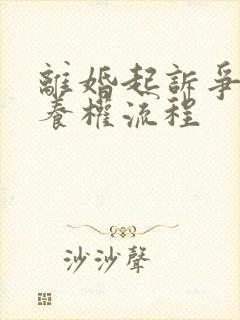 離婚起訴爭
養權流程
沙沙聲